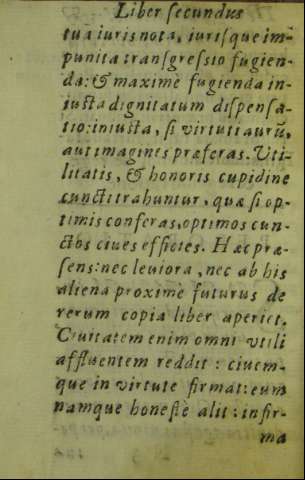 Liber secundus
tua iuris nota, iurisque im-
punita transgressio fugien-
da: & maximè fugienda in-
iusta dignitatum dispensa-
tio: iniusta, si virtuti aurũ,
aut imagines præferas. Vti-
litatis, & honoris cupidine
cuncti trahuntur, quæ si op-
timis conferas, optimos cun-
ctos ciues efficies. Hæc præ-
sens: nec leuiora, nec ab his
aliena proximè futurus de
rerum copia liber aperiet.
Ciuitatem enim omni vtili
affluentem reddit: ciuem-
que in virtute firmat: eum
namque honestè alit: infir-
ma